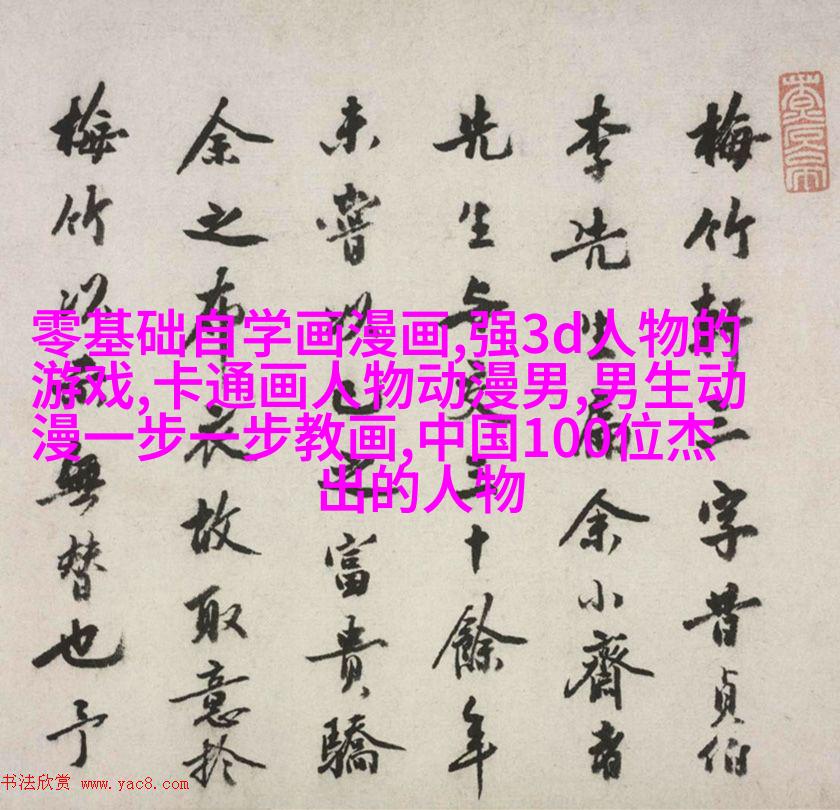 梅竹軒三字昔貞伯
李先生扁余小齋者
先生与交三十餘年
未嘗以己之富貴驕
余之布衣故取意於
梅竹以無替也予
零基础自学画漫画,强3d人物的
游戏,卡通画人物动漫男,男生动
漫一步一步教画,中国100位杰
出的人物
书法欣赏 www.yac8.com